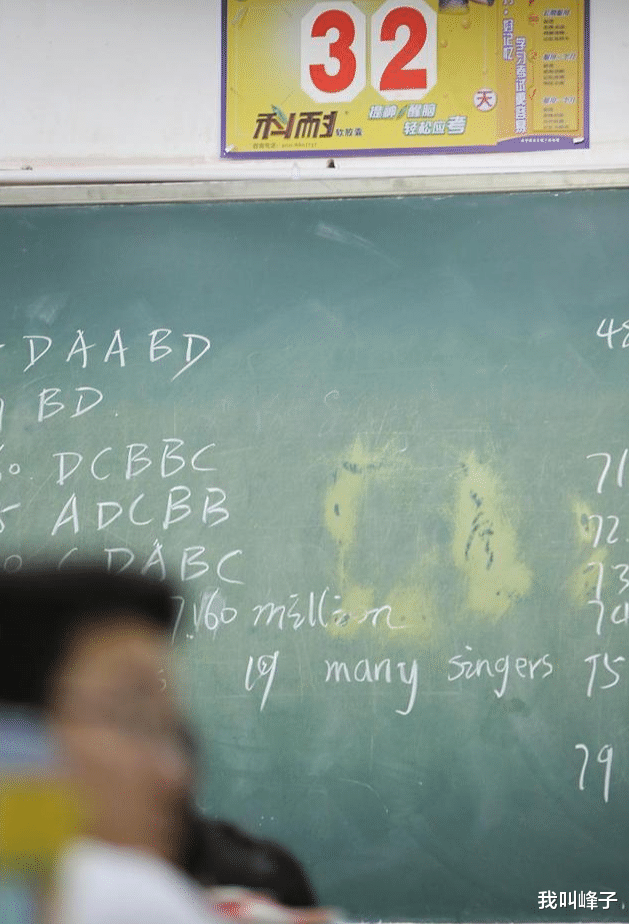 32
天
科耐软胶囊
提神 醒脑
轻松应考
好记忆
学习考试更容易
DAABD
BD.
DCBBC
ADCBB
CDABC
7.160 million
19 many singers
48
71
72.
73
74
75
79
我叫峰子